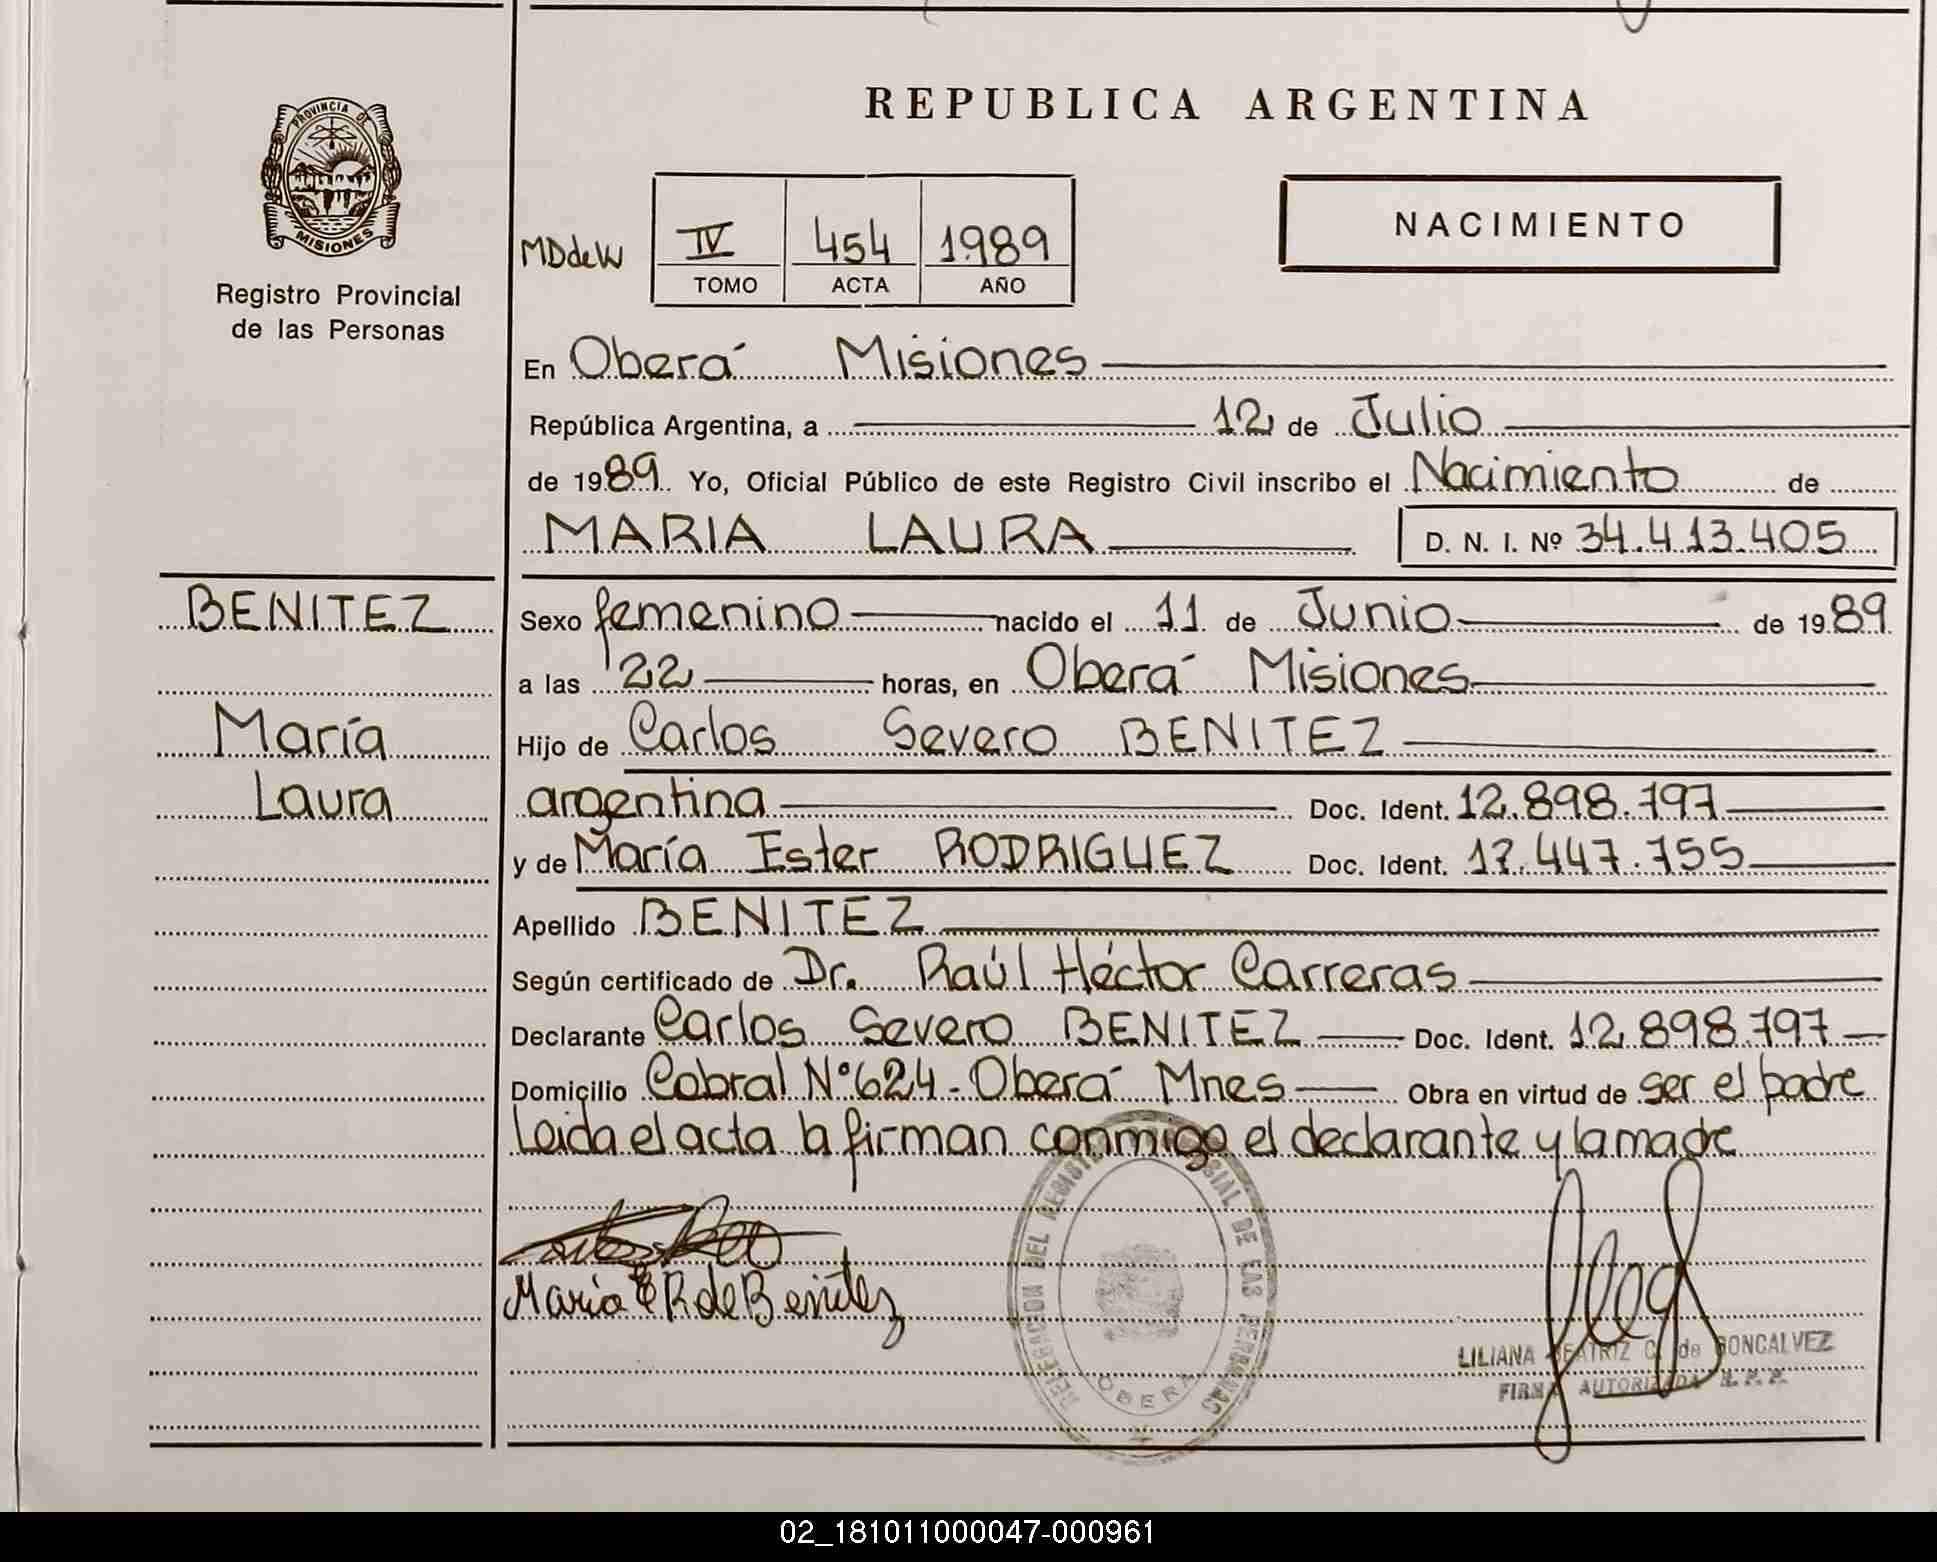 REPUBLICA ARGENTINA
PROVINCIA DE
MISIONES
Registro Provincial
de las Personas
MDdeW
IV 454 1989
TOMO ACTA AÑO
NACIMIENTO
En Oberá Misiones
República Argentina, a 12 de Julio
de 1989 Yo, Oficial Público de este Registro Civil inscribo el Nacimiento de
MARIA LAURA D. N. I. Nº 34.413.405
BENITEZ
María
Laura
Sexo femenino nacido el 11 de Junio de 1989
a las 22 horas, en Oberá Misiones
Hijo de Carlos Severo BENITEZ
argentina Doc. Ident. 12.898.797
y de María Ester RODRIGUEZ Doc. Ident. 17.447.755
Apellido BENITEZ
Según certificado de Dr. Raúl Héctor Carreras
Declarante Carlos Severo BENITEZ Doc. Ident. 12.898.797
Domicilio Cabral Nº 624 - Oberá Mnes Obra en virtud de ser el padre
Leida el acta la firman conmigo el declarante y la madre
María E R de Benitez
DELEGACION DEL REGISTRO DE LAS PERSONAS
OBERA
LILIANA BEATRIZ C. de GONCALVEZ
FIRMA AUTORIZADA R. P. P.
02_181011000047-000961